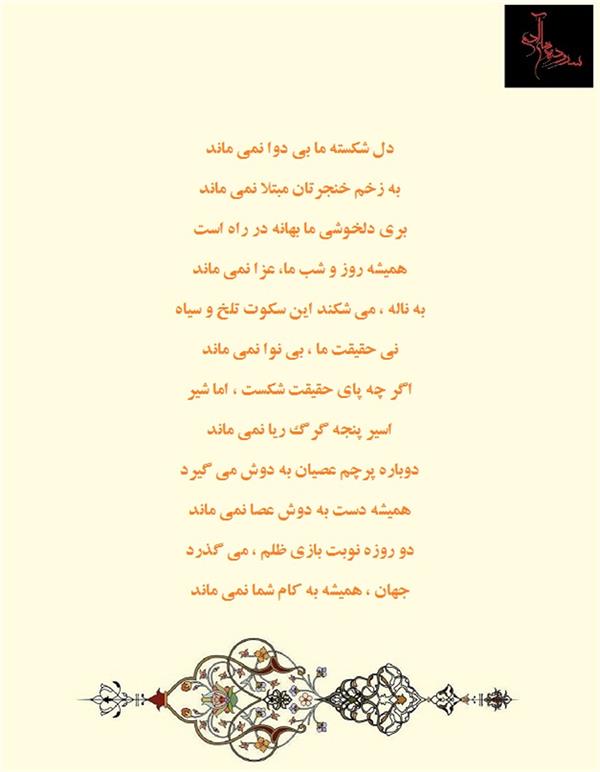 دل شکسته ما بی دوا نمی ماند
به زخم خنجرتان مبتلا نمی ماند
بری دلخوشی ما بهانه در راه است
همیشه روز و شب ما، عزا نمی ماند
به ناله ، می شکند این سکوت تلخ و سیاه
نی حقیقت ما ، بی نوا نمی ماند
اگر چه پای حقیقت شکست ، اما شیر
اسیر پنجه گرگ ریا نمی ماند
دوباره پرچم عصیان به دوش می گیرد
همیشه دست به دوش عصا نمی ماند
دو روزه نوبت بازی ظلم ، می گذرد
جهان ، همیشه به کام شما نمی ماند